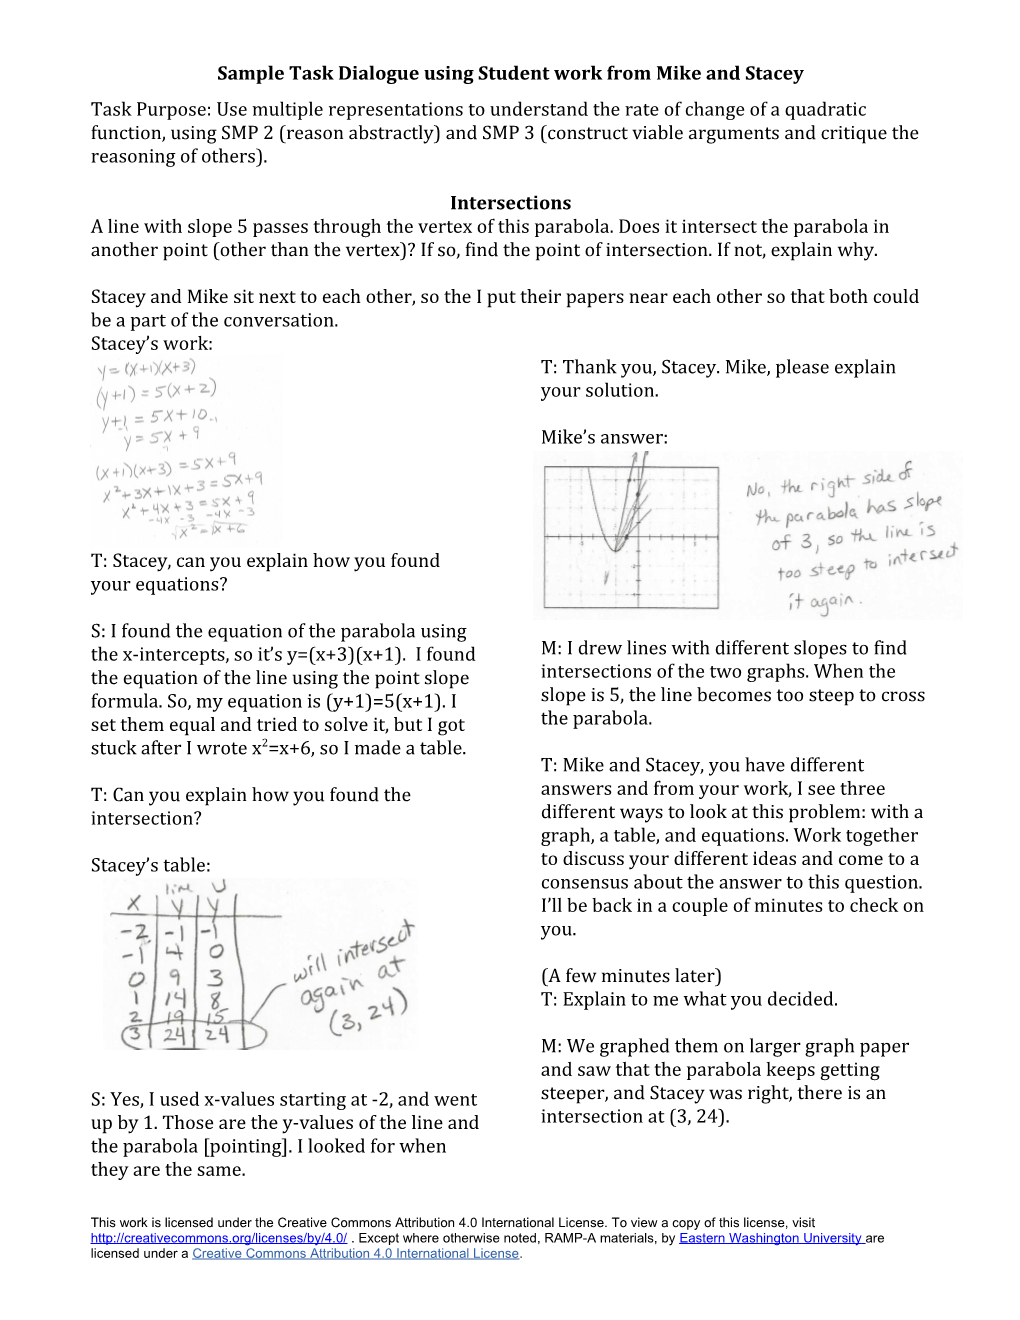 Sample Task Dialogue using Student work from Mike and Stacey
Task Purpose: Use multiple representations to understand the rate of change of a quadratic
function, using SMP 2 (reason abstractly) and SMP 3 (construct viable arguments and critique the
reasoning of others).
Intersections
A line with slope 5 passes through the vertex of this parabola. Does it intersect the parabola in
another point (other than the vertex)? If so, find the point of intersection. If not, explain why.
Stacey and Mike sit next to each other, so the I put their papers near each other so that both could
be a part of the conversation.
Stacey’s work:
y=(x+1)(x+3)
(y+1)=5(x+2)
y+1=5x+10
-1 -1
y=5x+9
(x+1)(x+3)=5x+9
x²+3x+1x+3=5x+9
x²+4x+3=5x+9
-4x -3 -4x -3
√x²=√x+6
T: Stacey, can you explain how you found
your equations?
S: I found the equation of the parabola using
the x-intercepts, so it’s y=(x+3)(x+1). I found
the equation of the line using the point slope
formula. So, my equation is (y+1)=5(x+1). I
set them equal and tried to solve it, but I got
stuck after I wrote x²=x+6, so I made a table.
T: Can you explain how you found the
intersection?
Stacey’s table:
line U
x y y
-2 -1 -1
-1 4 0
0 9 3
1 14 8
2 19 15
3 24 24
will intersect
again at
(3, 24)
S: Yes, I used x-values starting at -2, and went
up by 1. Those are the y-values of the line and
the parabola [pointing]. I looked for when
they are the same.
T: Thank you, Stacey. Mike, please explain
your solution.
Mike’s answer:
No, the right side of
the parabola has slope
of 3, so the line is
too steep to intersect
it again.
M: I drew lines with different slopes to find
intersections of the two graphs. When the
slope is 5, the line becomes too steep to cross
the parabola.
T: Mike and Stacey, you have different
answers and from your work, I see three
different ways to look at this problem: with a
graph, a table, and equations. Work together
to discuss your different ideas and come to a
consensus about the answer to this question.
I’ll be back in a couple of minutes to check on
you.
(A few minutes later)
T: Explain to me what you decided.
M: We graphed them on larger graph paper
and saw that the parabola keeps getting
steeper, and Stacey was right, there is an
intersection at (3, 24).
This work is licensed under the Creative Commons Attribution 4.0 International License. To view a copy of this license, visit
http://creativecommons.org/licenses/by/4.0/ . Except where otherwise noted, RAMP-A materials, by Eastern Washington University are
licensed under a Creative Commons Attribution 4.0 International License.